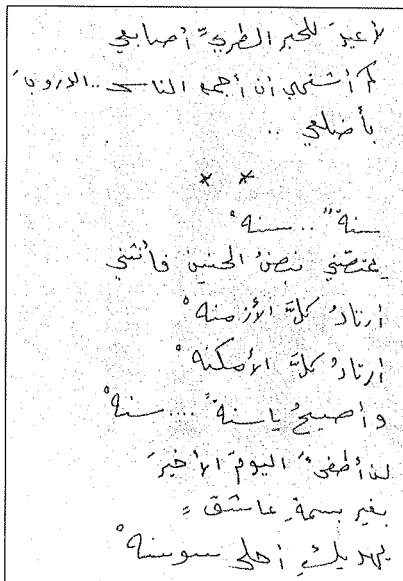 لأعيرَ للحبر الطريِّ أصابعي
كم أشتهي أن أجمع الناسَ .. الدروبَ
بأضلعي ..
* *
سنةً .. سنهْ
يمتصّني نبضُ الحنين فأنثني
أرتادُ كلَّ الأزمنهْ
أرتادُ كلَّ الأمكنهْ
وأصيحُ يا سنةً .... سنهْ
لن أطفئَ اليومَ الأخيرَ
بغير بسمةِ عاشقٍ
يهديكِ أحلى سوسنهْ